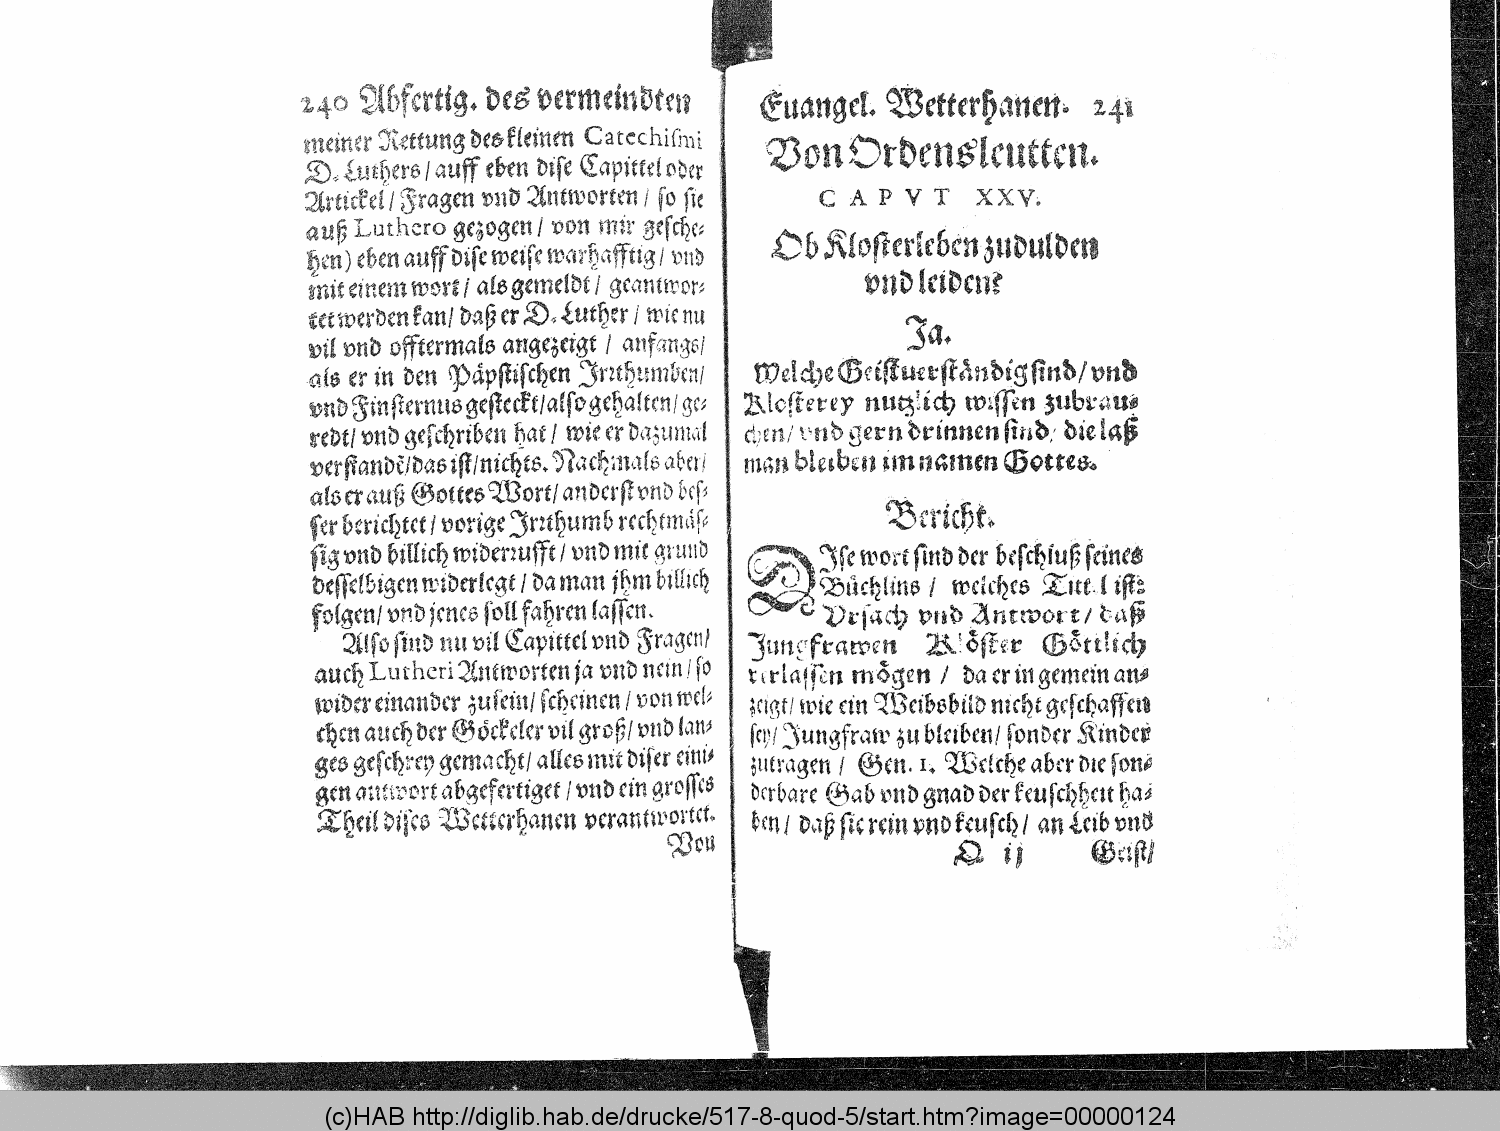 240 Abfertig. des vermeindten
meiner Rettung des kleinen Catechismi
D. Luthers / auff eben dise Capittel oder
Artickel / Fragen vnd Antworten / so sie
auß Luthero gezogen / von mir gesche-
hen) eben auff dise weise warhafftig / vnd
mit einem wort / als gemeldt / geantwor-
tet werden kan / daß er D. Luther / wie nu
vil vnd offtermals angezeigt / anfangs /
als er in den Päpstischen Irrthumben /
vnd Finsternus gesteckt / also gehalten / ge-
redt / vnd geschriben hat / wie er dazumal
verstandē / das ist / nichts. Nachmals aber /
als er auß Gottes Wort / anderst vnd bes-
ser berichtet / vorige Irrthumb rechtmäs-
sig vnd billich widerrufft / vnd mit grund
desselbigen widerlegt / da man jhm billich
folgen / vnd jenes soll fahren lassen.
Also sind nu vil Capittel vnd Fragen /
auch Lutheri Antworten ja vnd nein / so
wider einander zusein / scheinen / von wel-
chen auch der Göckeler vil groß / vnd lan-
ges geschrey gemacht / alles mit diser eini-
gen antwort abgefertiget / vnd ein grosses
Theil dises Wetterhanen verantwortet.
Von
Euangel. Wetterhanen. 241
Von Ordensleutten.
CAPVT XXV.
Ob Klosterleben zudulden
vnd leiden?
Ja.
Welche Geistuerständig sind / vnd
Klosterey nutzlich wissen zubrau-
chen / vnd gern drinnen sind / die laß
man bleiben im namen Gottes.
Bericht.
DIse wort sind der beschluß seines
Büchlins / welches Tittel ist:
Vrsach vnd Antwort / daß
Jungfrawen Klöster Göttlich
verlassen mögen / da er in gemein an-
zeigt / wie ein Weibsbild nicht geschaffen
sey / Jungfraw zu bleiben / sonder Kinder
zutragen / Gen. 1. Welche aber die son-
derbare Gab vnd gnad der keuschheit ha-
ben / daß sie rein vnd keusch / an Leib vnd
Q ij Geist /
(c)HAB http://diglib.hab.de/drucke/517-8-quod-5/start.htm?image=00000124